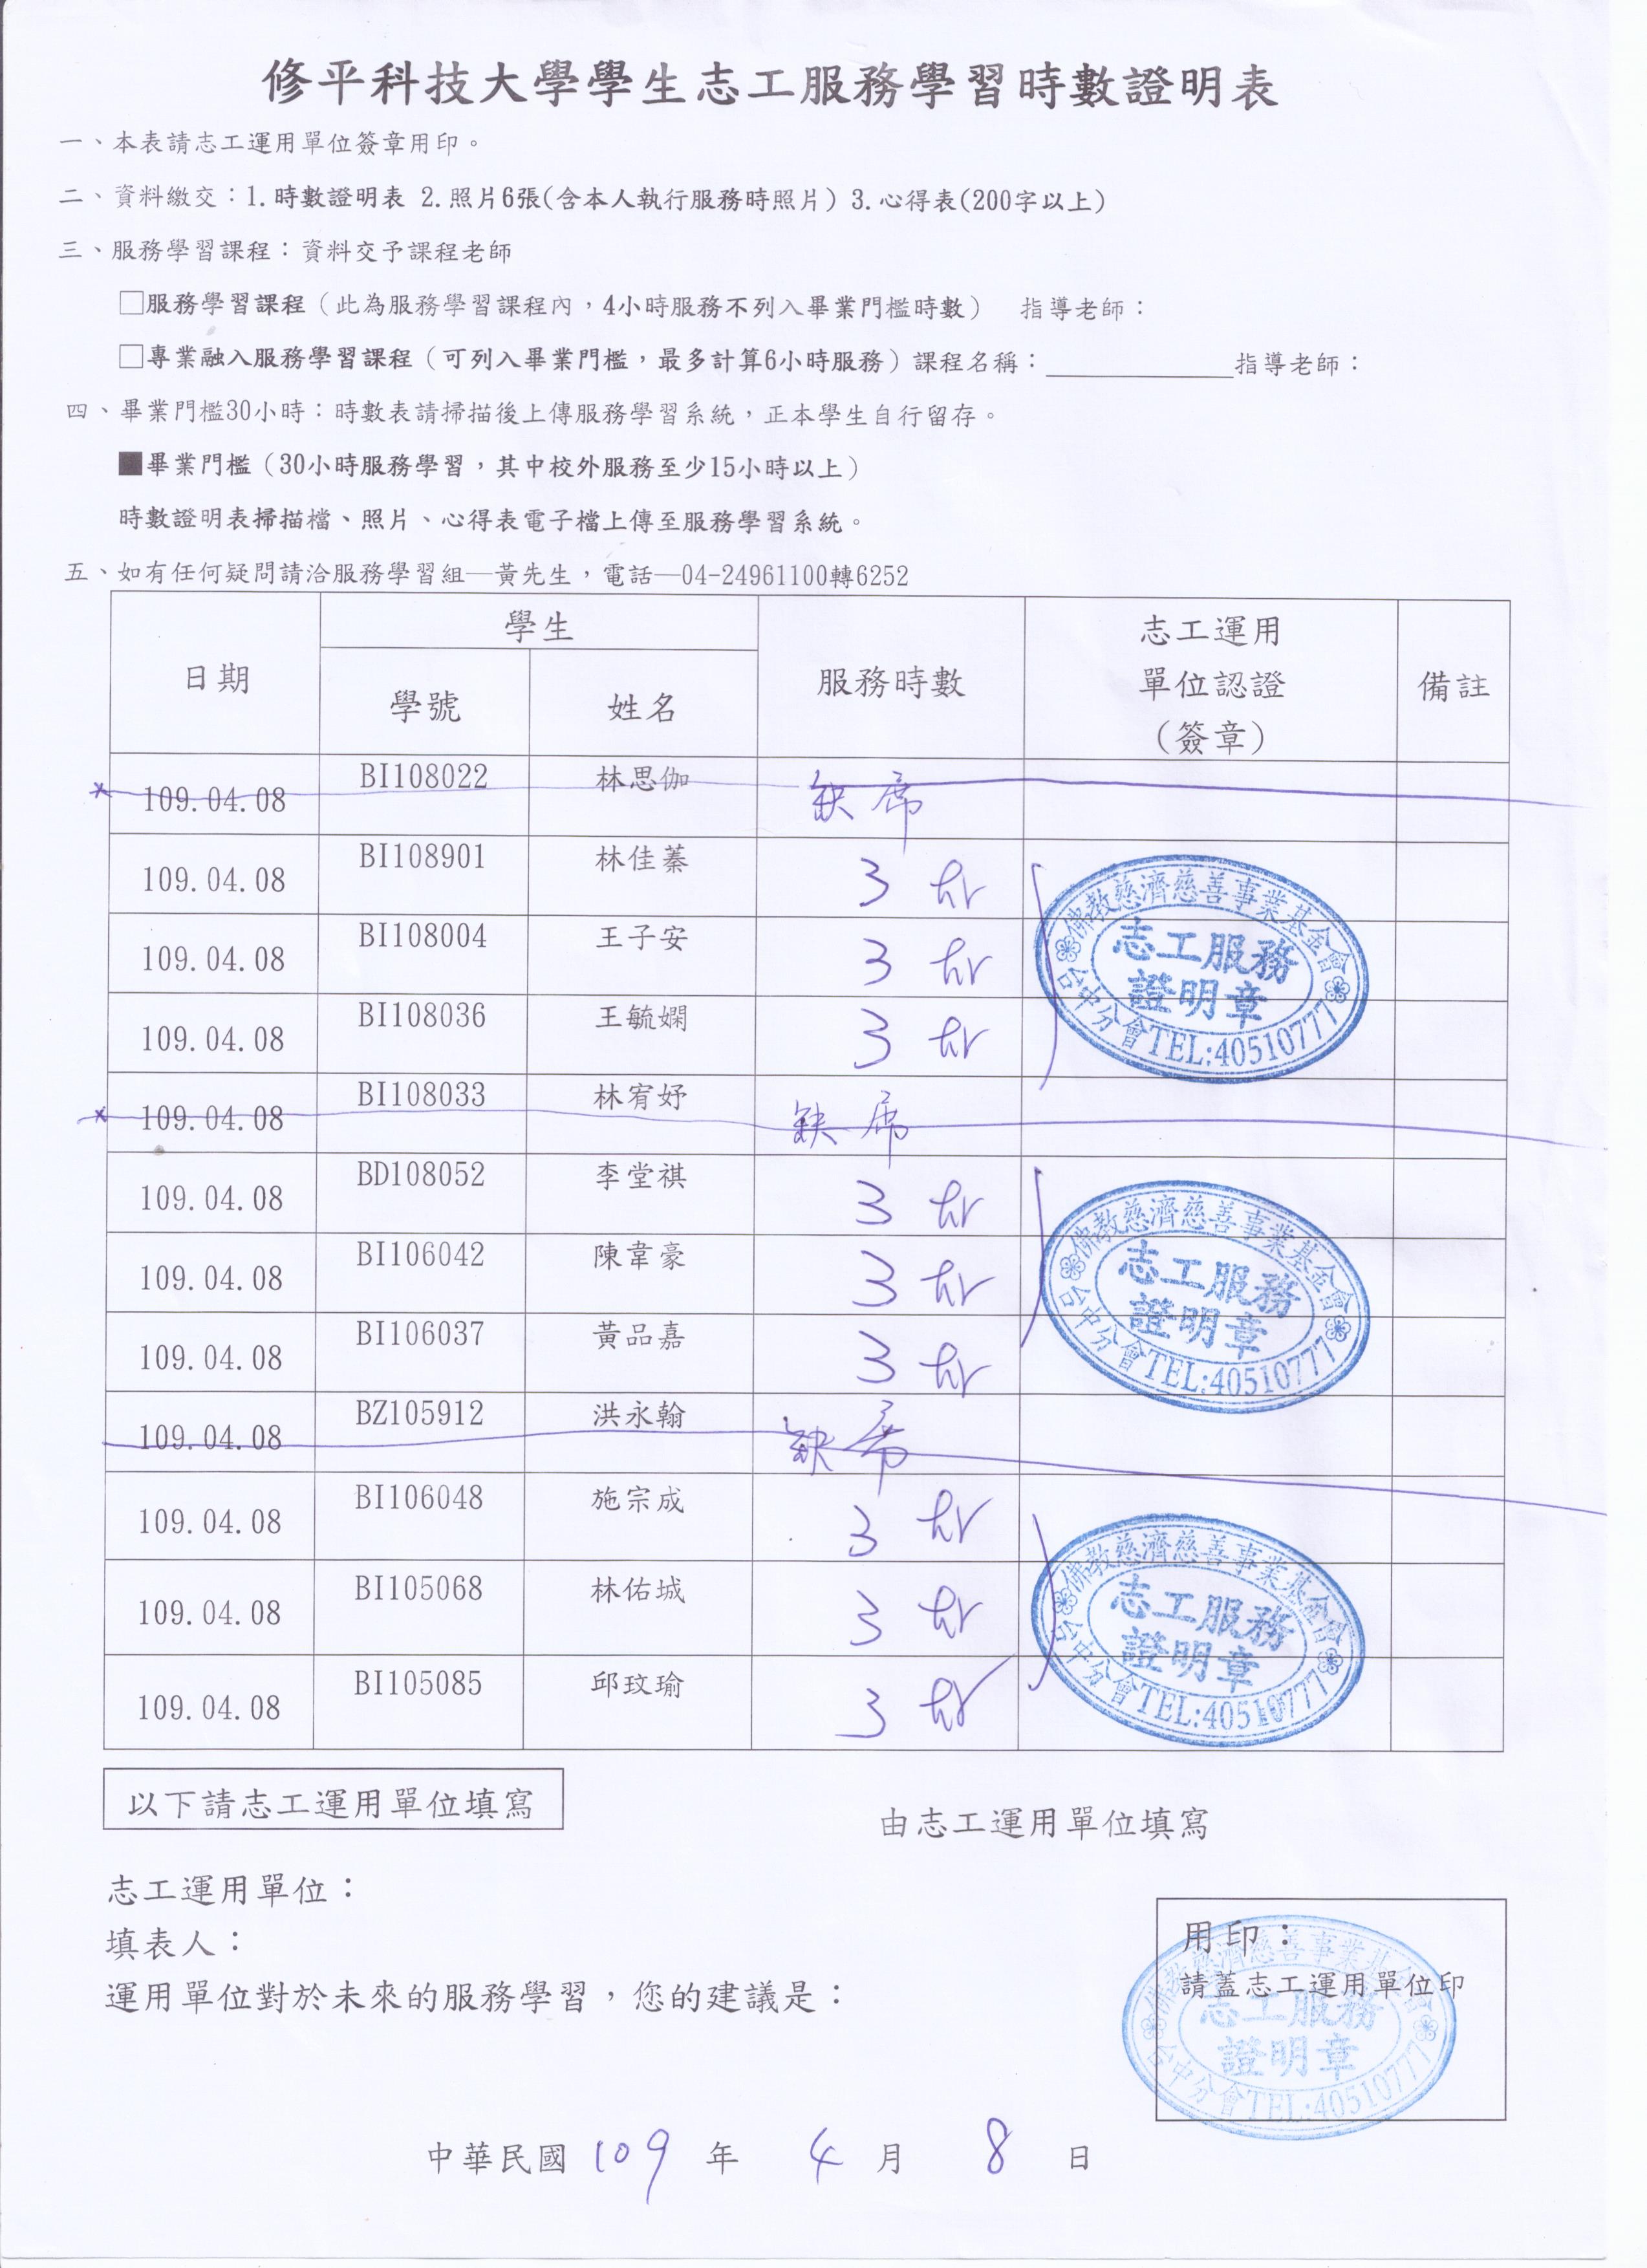 修平科技大學學生志工服務學習時數證明表
一、本表請志工運用單位簽章用印。
二、資料繳交：1.時數證明表 2.照片6張(含本人執行服務時照片) 3.心得表(200字以上)
三、服務學習課程：資料交予課程老師
□服務學習課程（此為服務學習課程內，4小時服務不列入畢業門檻時數） 指導老師：
□專業融入服務學習課程（可列入畢業門檻，最多計算6小時服務）課程名稱：__________指導老師：
四、畢業門檻30小時：時數表請掃描後上傳服務學習系統，正本學生自行留存。
■畢業門檻（30小時服務學習，其中校外服務至少15小時以上）
時數證明表掃描檔、照片、心得表電子檔上傳至服務學習系統。
五、如有任何疑問請洽服務學習組—黃先生，電話—04-24961100轉6252
日期 學生 服務時數 志工運用單位認證（簽章） 備註
學號 姓名
109.04.08 BI108022 林思伽 缺席
109.04.08 BI108901 林佳蓁 3 hr
109.04.08 BI108004 王子安 3 hr
109.04.08 BI108036 王毓嫻 3 hr
佛教慈濟慈善事業基金會
志工服務
證明章
台中分會TEL:40510777
109.04.08 BI108033 林宥妤 缺席
109.04.08 BD108052 李堂祺 3 hr
109.04.08 BI106042 陳韋豪 3 hr
109.04.08 BI106037 黃品嘉 3 hr
佛教慈濟慈善事業基金會
志工服務
證明章
台中分會TEL:40510777
109.04.08 BZ105912 洪永翰 缺席
109.04.08 BI106048 施宗成 3 hr
109.04.08 BI105068 林佑城 3 hr
109.04.08 BI105085 邱玟瑜 3 hr
佛教慈濟慈善事業基金會
志工服務
證明章
台中分會TEL:40510777
以下請志工運用單位填寫
由志工運用單位填寫
志工運用單位：
填表人：
運用單位對於未來的服務學習，您的建議是：
用印：
請蓋志工運用單位印
佛教慈濟慈善事業基金會
志工服務
證明章
台中分會TEL:40510777
中華民國 109 年 4 月 8 日